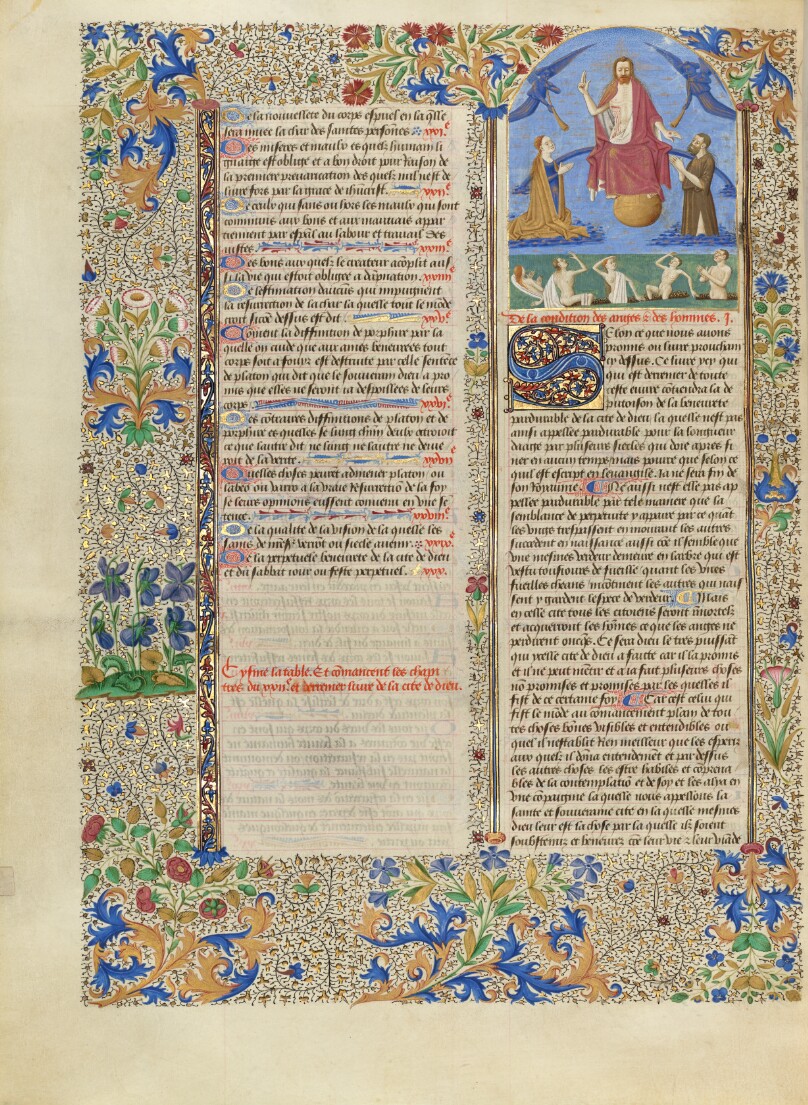 De la nouvellete du corps espūel en la q̄lle
sera muee la char des saintes persōnes xxi.ᵉ
Des miseres et maulx esquelz humain li
gnaige est obligie et a bon droit pour raison de
la premiere prevarication des quelz nul nest de
livre fors par la grace de ihūcrist. xxii.ᵉ
De ceulx qui sans ou hors les maulx qui sont
communs aux bons et aux mauvais appar
tiennent par espāl au labour et travail des
iustes. xxiii.ᵉ
Des bons aux quelz le createur acōplit aussi
la vie qui estoit obligee a dāpnation. xxiiii.ᵉ
De lestimation daucūs qui impugnent
la resurrection de la char la quelle tout le mōde
croit sicōe dessus est dit. xxv.ᵉ
Cōment la diffinition de porphire par la
quelle on cuide que aux ames beneurees tout
corps soit a fouir est destruite par celle sentēce
de platon qui dit que le souverain dieu a pro
mis que elles ne seront ia despoillees de leurs
corps. xxvi.ᵉ
Des cōtraires diffinitions de platon et de
porphire es quelles se lung chūn deulx octroioit
ce que lautre dit ne lung ne lautre ne devie
roit de la verite. xxvii.ᵉ
Quelles choses pouret admener platon ou
labeo ou varro a la vraie resurrectiō de la foy
se leurs opinions eussent convenu en une sē
tence. xxviii.ᵉ
De la qualite de la vision de la quelle les
sains de dieu verrōt ou siecle advenir. xxix.ᵉ
De la perpetuele beneurete de la cite de dieu
et du sabbat iour ou feste perpetuel. xxx.
Cy fine la table. Et cōmancent les chapi
tres du xxii.ᵉ et derrenier livre de la cite de dieu.
De la condition des anges et des hommes. j.
Selon ce que nous avons
promis ou livre prouchain
cy dessus. Ce livre ycy qui
qui est derenier de toute
ceste euvre cōtendra la de
sputoison de la beneurete
pardurable de la cite de dieu la quelle nest pas
ainsi appellee pardurable pour la longueur
daage par plusieurs siecles qui doie apres fi
ner en aucun temps mais pource que selon ce
quil est escript en leuangile. Ja ne sera fin de
son royaume. Ne aussi nest elle pas ap
pellee pardurable par tele maniere que la
semblance de perpetuite y appaire par ce quāt
les ungs trespassent en mourant les autres
succedent en naissance aussi cōe il semble que
une mesmes verdeur demeure en larbre qui est
vestu tousiours de fueille quant les unes
fueilles cheans incōtinent les autres qui nais
sent y gardent lespece de verdeur. Mais
en celle cite tous les citoiens seront īmortelz
et acquerront les hōmes ce que les anges ne
perdirent oncqs. Ce fera dieu le tres puissāt
qui ycelle cite de dieu a faicte car il la promis
et il ne peut mētir et a ia fait plusieurs choses
no promises et promises par les quelles il
fist de ce certaine foy. Car cest celui qui
fist le mōde au cōmancement plain de tou
tes choses bōnes visibles et entendibles ou
quel il nestablit rien meilleur que les esperiz
aux quelz il dōna entendement et par dessus
les autres choses les fist habiles et cōprena
bles de la contemplatiō et de soy et les alya en
une cōpaignie la quelle nous appellons la
sainte et souveraine cite en la quelle mesmes
dieu leur est la chose par la quelle ilz soient
soubstenuz et beneurez cōe leur vie et leur viāde